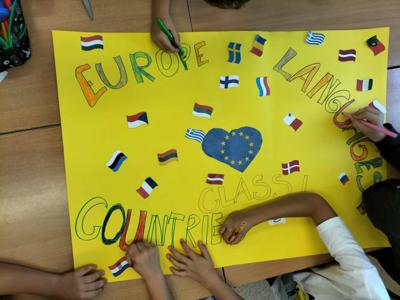 EUROPE
LANGUAGES
CLASS!
COUNTRIE